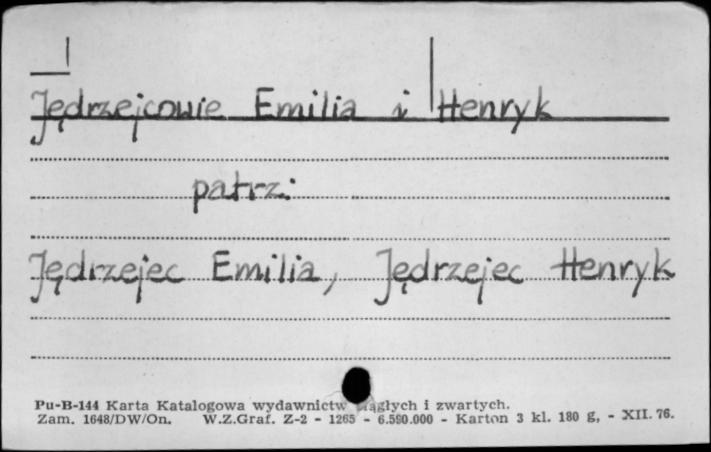 Jędrzejcowie Emilia i Henryk
patrz:
Jędrzejec Emilia, Jędrzejec Henryk
Pu-B-144 Karta Katalogowa wydawnictw ciągłych i zwartych.
Zam. 1648/DW/On. W.Z.Graf. Z-2 - 1265 - 6.590.000 - Karton 3 kl. 180 g, - XII. 76.